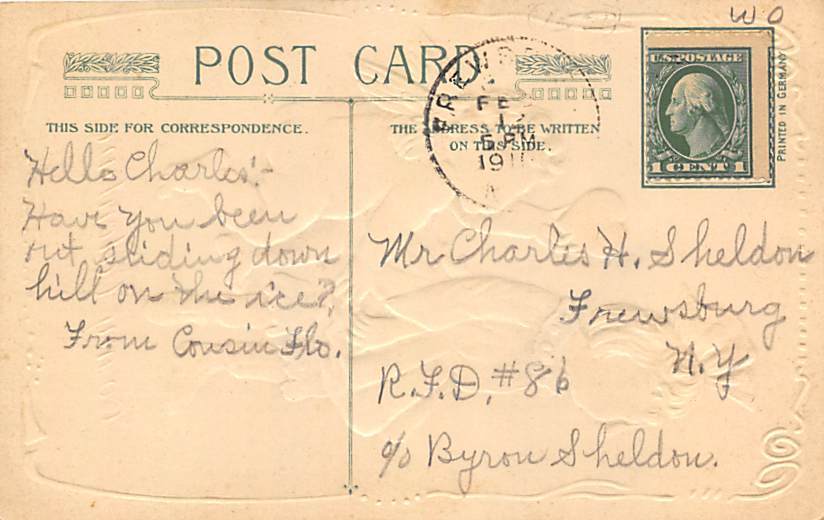 W O
POST CARD
THIS SIDE FOR CORRESPONDENCE.
THE ADDRESS TO BE WRITTEN
ON THIS SIDE.
FREWSB
FE
5 PM
191
U.S. POSTAGE
1 CENT 1
PRINTED IN GERMANY
Hello Charles:-
Have you been
out sliding down
hill on the ice?
From Cousin Flo.
Mr Charles H. Sheldon
Frewsburg
N. Y
R.F.D. #86
c/o Byron Sheldon.